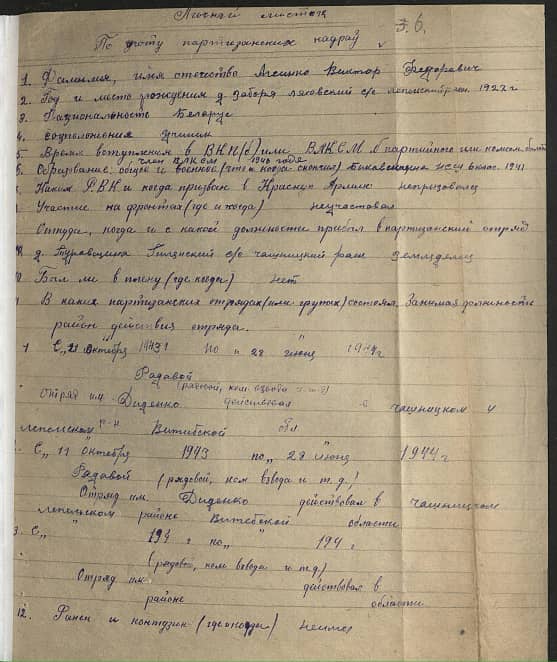 Личный листок
36.
По учоту партизанских кадраў
1. Фамилия, имя отчество Виктор Федорович
2. Год и место рождения д. Заборя с/с 1927 г
3. Националность Беларус
4. соцположения учиник
5. Время вступления в ВКП(б) или ВЛКСМ б партийного или комсом. билета
член ВЛКСМ 1940 года
6. Образование, общое и военное (что и когда окончил) НСШ 6 клас. 1941
Каким РВК и когда призван в Красную Армию непризовался
Участие на фронтах (где и когда) неучаствовал
Откуда, когда и с какой должности прибыл в партизанский отряд
д. Туровщина с/с чашницкий раён земледелец
10 Был ли в плену (где когда) нет
В каких партизанских отрядах (или групах) состоял, Занимая должность
район действия отряда.
1 С „21 октября 1943 г по „ 28 июня 1944 г
Радавой
(радвой, ком. взвода и т.д)
отряд им. Диденко действовал в чашницком и
лепельском р-н Витибской бл
С „ 11 октября 1943 по „ 28 июня 1944 г
Рядавой (рядовой, ком взвода и т.д.)
Отряд им. Диденко действовал в чашницком
лепельском районе Витебской области
3. С „ 194 г по „ 194 г
(рядовой, ком взвода и т д)
Отряд им. действовал в
районе области
12. Ранен и контузин (где и когда) неимел